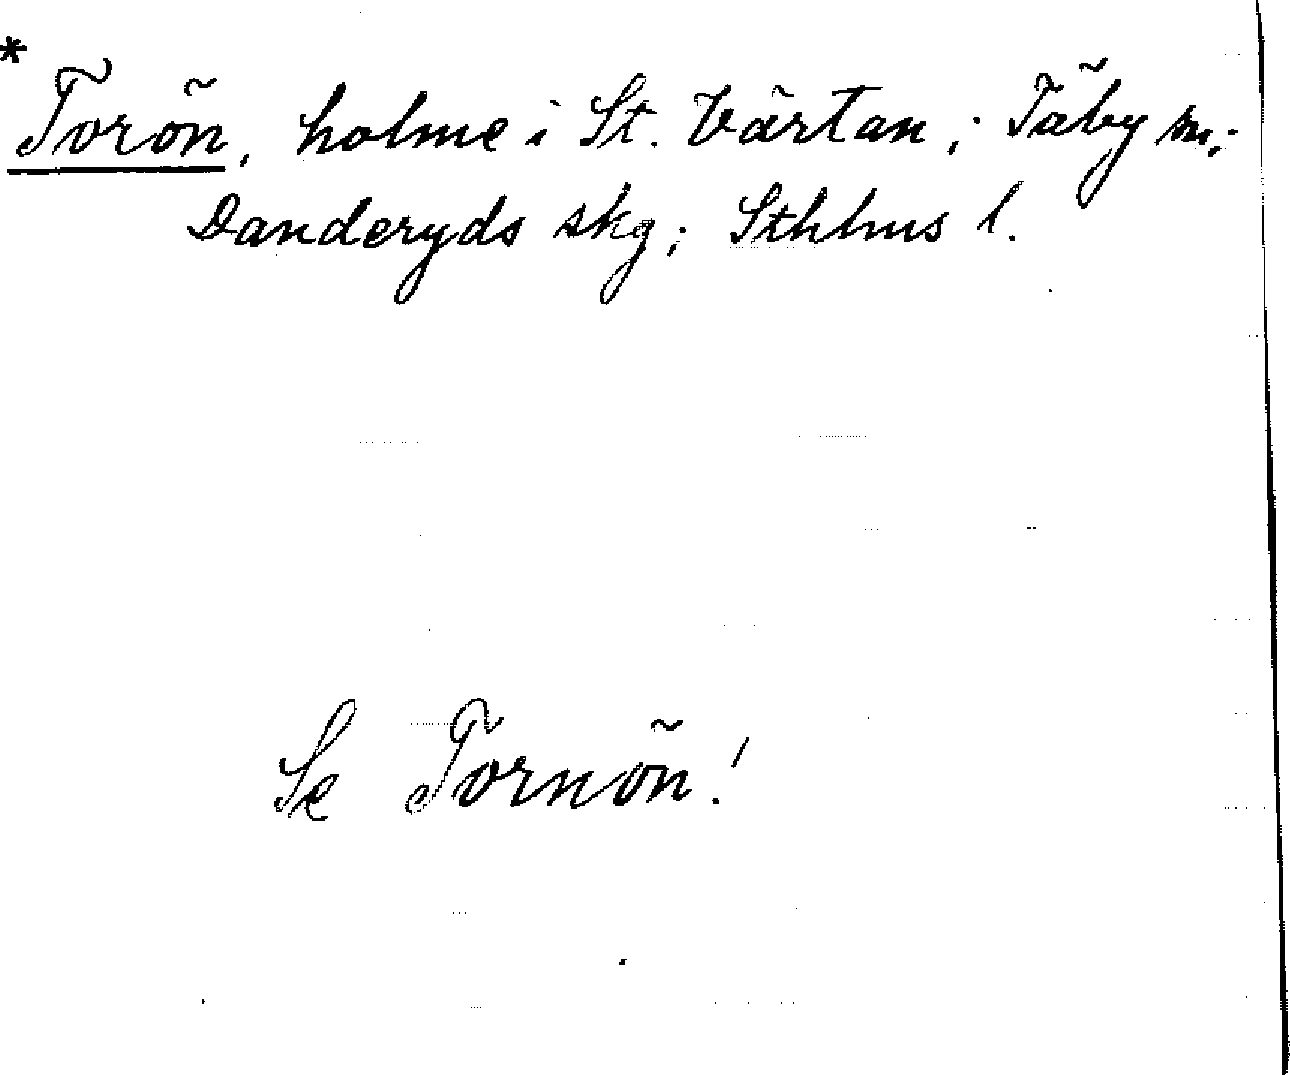 *
Torön, holme i St. Värtan; Täby sn;
Danderyds skg; Sthlms l.
Se Tornön!